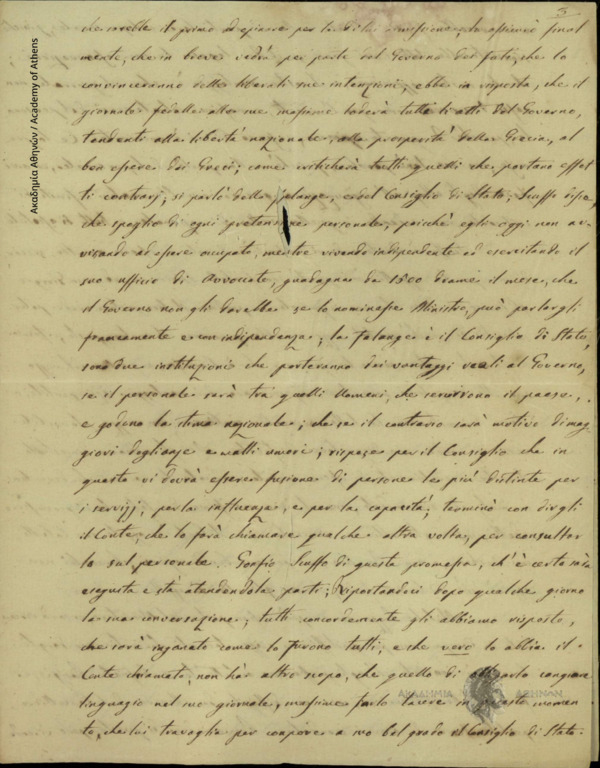 3
che sarebbe il primo ad opinare per la di lui missione, lo assicurò final
mente, che in breve vedrà per parte del Governo dei fatti, che lo
convinceranno delle liberali sue intenzioni; ebbe in risposta, che il
giornale fedele alle sue massime loderà tutti li atti del Governo,
tendenti alla libertà nazionale, alla prosperità della Grecia, al
ben essere dei Greci; come criticherà tutti quelli che portano effet
ti contrarj; si parlò della falange, e del Consiglio di Stato; Scuffo disse,
che spoglio di ogni pretensione personale, poichè egli oggi non av
vicando ad essere occupato, mentre vivendo indipendente ed esercitando il
suo ufficio di Avvocato, guadagna da 1500 dramme il mese, che
il Governo non gli darebbe se lo nominasse Ministro, può parlargli
francamente e con indipendenza; la falange e il Consiglio di Stato,
sono due instituzioni che porteranno dei vantaggi reali al Governo,
se il personale sarà tra quelli Uomini, che servirono il paese,
e godono la stima nazionale; che se il contrario sarà motivo di mag
giori doglianze e cattivi umori; rispose per il Consiglio che in
questo vi dovrà essere fusione di persone le più distinte per
i servizj, per la influenza, e per la capacità; terminò con dirgli
il Conte, che lo farà chiamare qualche altra volta, per consultar
lo sul personale. Gonfio Scuffo di questa promessa, ch'è certo sarà
eseguita e stà attendendola partì; Riportandoci dopo qualche giorno
la sua conversazione; tutti concordemente gli abbiamo risposto,
che sarà ingannato come lo furono tutti, e che vero lo abbia il
Conte chiamato, non há altro scopo, che quello di fargli cangiare
linguaggio nel suo giornale, massime farlo tacere in questo momen
to, che lui travaglia per comporre a suo bel grado il Consiglio di Stato.
Ακαδημία Αθηνών / Academy of Athens
ΑΚΑΔΗΜΙΑ ΑΘΗΝΩΝ